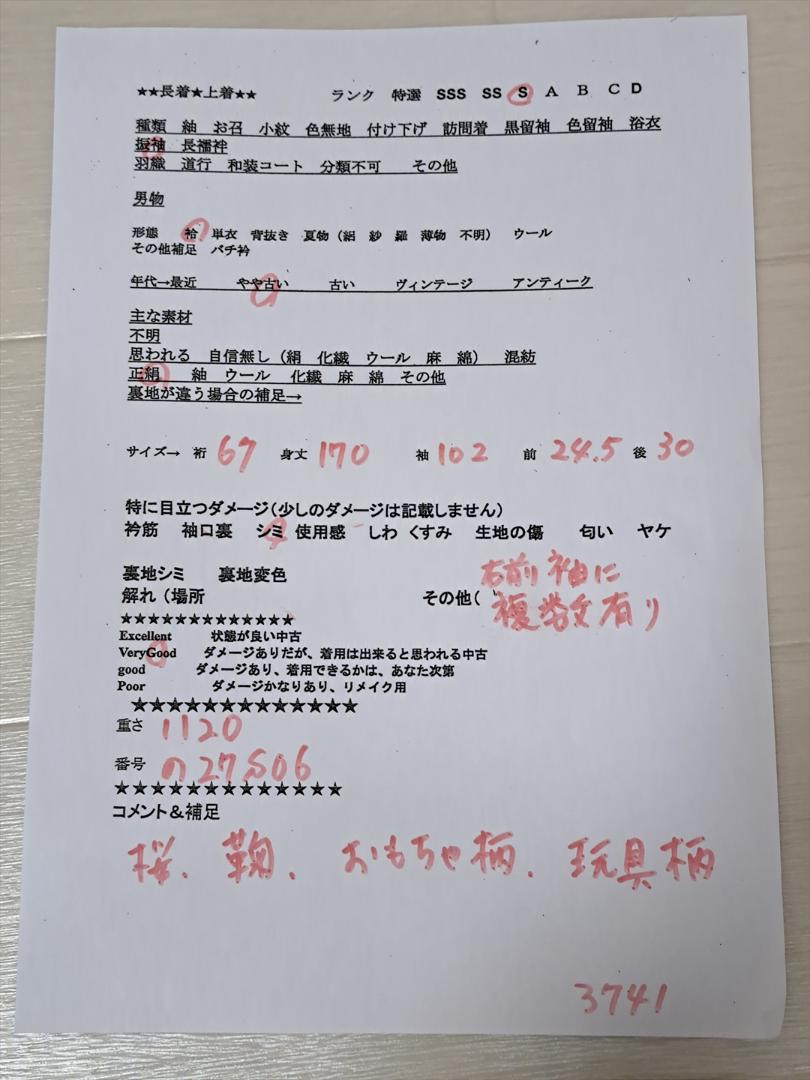 ★★長着★上着★★ ランク 特選 SSS SS S A B C D
種類 紬 お召 小紋 色無地 付け下げ 訪問着 黒留袖 色留袖 浴衣
振袖 長襦袢
羽織 道行 和装コート 分類不可 その他
男物
形態 袷 単衣 背抜き 夏物（絽 紗 羅 薄物 不明） ウール
その他補足 バチ衿
年代→最近 やや古い 古い ヴィンテージ アンティーク
主な素材
不明
思われる 自信無し（絹 化繊 ウール 麻 綿） 混紡
正絹 紬 ウール 化繊 麻 綿 その他
裏地が違う場合の補足→
サイズ→ 裄 67 身丈 170 袖 102 前 24.5 後 30
特に目立つダメージ（少しのダメージは記載しません）
衿筋 袖口裏 シミ 使用感 しわ くすみ 生地の傷 匂い ヤケ
裏地シミ 裏地変色
解れ（場所 その他（ 右前袖に
複数有り
★★★★★★★★★★★★★
Excellent 状態が良い中古
VeryGood ダメージありだが、着用は出来ると思われる中古
good ダメージあり、着用できるかは、あなた次第
Poor ダメージかなりあり、リメイク用
★★★★★★★★★★★★★
重さ 1120
番号 の27S06
★★★★★★★★★★★★★
コメント＆補足
桜、鞠、おもちゃ柄、玩具柄
3741